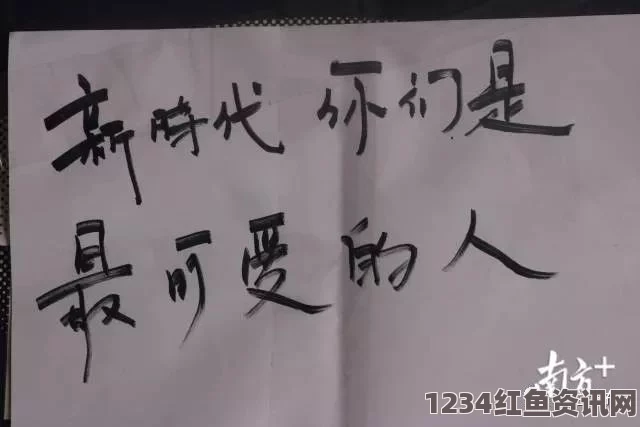 新時代 你们是
最可爱的人
南方+
1234红鱼资讯网